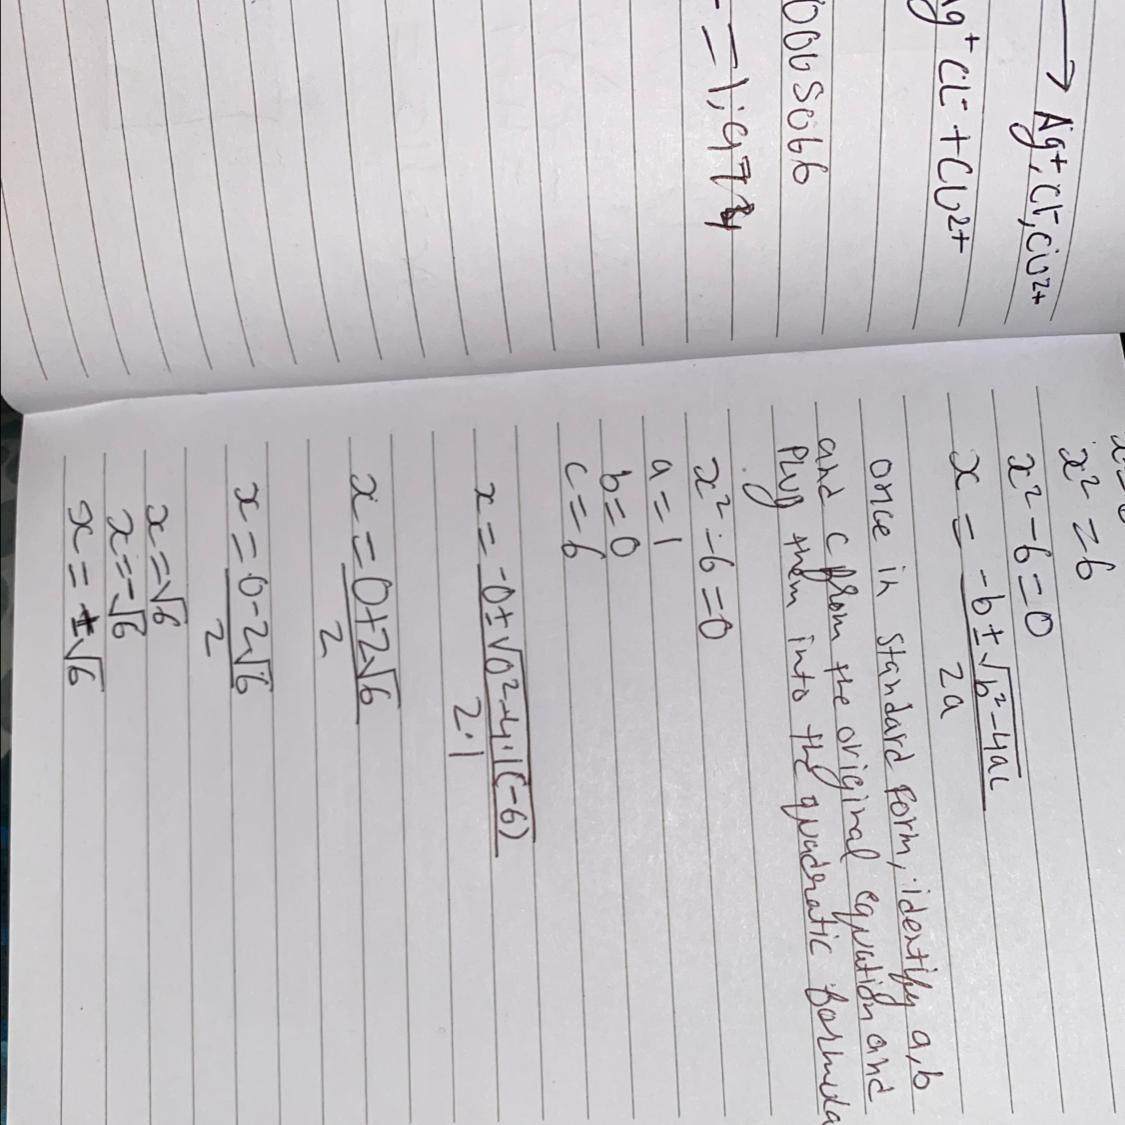 → Ag+, Cl-, Cu2+
Ag+ Cl- + Cu2+
006 5066
= 1,974
x² = 6
x² - 6 = 0
x = -b ± √b² - 4ac / 2a
once in standard form, identify a, b
and c from the original equation and
plug them into the quadratic formula
x² - 6 = 0
a = 1
b = 0
c = 6
x = -0 ± √0² - 4·1(-6) / 2·1
x = 0 + 2√6 / 2
x = 0 - 2√6 / 2
x = √6
x = -√6
x = ±√6